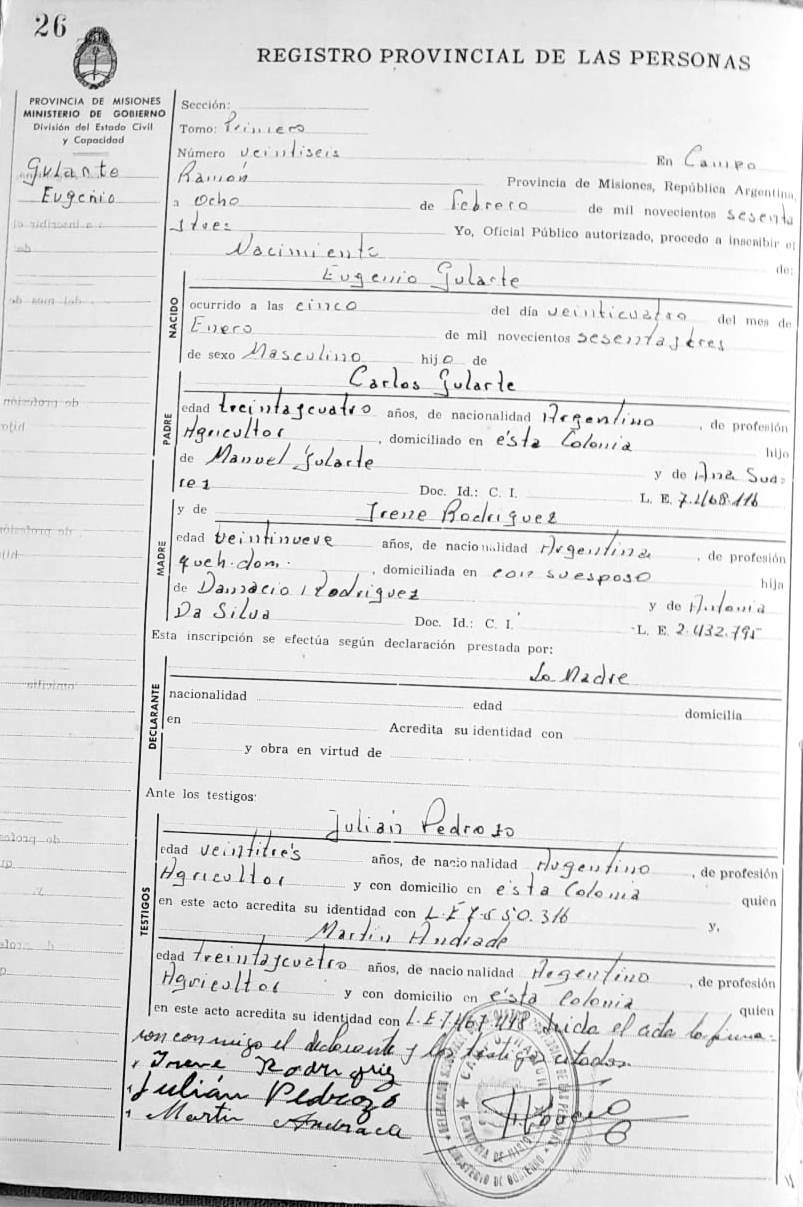 26
REGISTRO PROVINCIAL DE LAS PERSONAS
PROVINCIA DE MISIONES
MINISTERIO DE GOBIERNO
División del Estado Civil
y Capacidad
Gularte
Eugenio
Sección:
Tomo: Primero
Número veintiseis En Campo
Ramón Provincia de Misiones, República Argentina,
a ocho de febrero de mil novecientos sesenta
y tres Yo, Oficial Público autorizado, procedo a inscribir el
Nacimiento de:
NACIDO
Eugenio Gularte
ocurrido a las cinco del día veinticuatro del mes de
Enero de mil novecientos sesentaytres
de sexo Masculino hijo de
PADRE
Carlos Gularte
edad treintaycuatro años, de nacionalidad Argentino, de profesión
Agricultor, domiciliado en ésta Colonia hijo
de Manuel Gularte y de Ana Sua-
rez Doc. Id.: C. I. L. E. 7.468.116
MADRE
y de Irene Rodriguez
edad veintinueve años, de nacionalidad Argentina, de profesión
queh. dom., domiciliada en con su esposo hija
de Damacio Rodriguez y de Antonia
Da Silva Doc. Id.: C. I. L. E. 2.432.795
Esta inscripción se efectúa según declaración prestada por:
DECLARANTE
La Madre
nacionalidad edad domicilia
en Acredita su identidad con
y obra en virtud de
Ante los testigos:
TESTIGOS
Julián Pedrozo
edad veintitrés años, de nacionalidad Argentino, de profesión
Agricultor y con domicilio en ésta Colonia quien
en este acto acredita su identidad con L.E 7.550.316 y,
Martin Andrade
edad treintaycuatro años, de nacionalidad Argentino, de profesión
Agricultor y con domicilio en ésta Colonia quien
en este acto acredita su identidad con L.E 7.467.498 leida el acta la firma-
ron conmigo el declarante y los testigos citados.
Irene Rodriguez
Julián Pedrozo
Martin Andrada